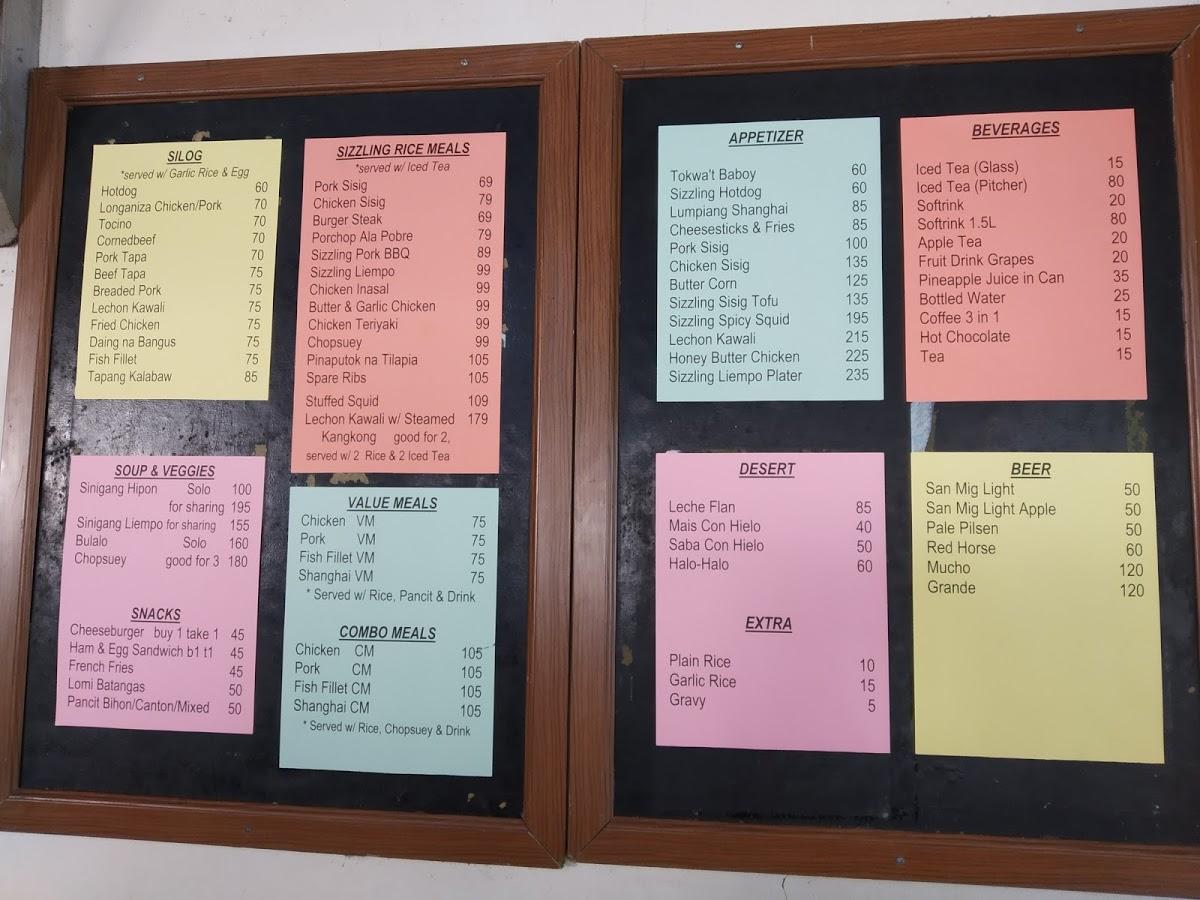 SILOG
*served w/ Garlic Rice & Egg
Hotdog 60
Longaniza Chicken/Pork 70
Tocino 70
Cornedbeef 70
Pork Tapa 70
Beef Tapa 75
Breaded Pork 75
Lechon Kawali 75
Fried Chicken 75
Daing na Bangus 75
Fish Fillet 75
Tapang Kalabaw 85
SIZZLING RICE MEALS
*served w/ Iced Tea
Pork Sisig 69
Chicken Sisig 79
Burger Steak 69
Porchop Ala Pobre 79
Sizzling Pork BBQ 89
Sizzling Liempo 99
Chicken Inasal 99
Butter & Garlic Chicken 99
Chicken Teriyaki 99
Chopsuey 99
Pinaputok na Tilapia 105
Spare Ribs 105
Stuffed Squid 109
Lechon Kawali w/ Steamed 179
Kangkong good for 2,
served w/ 2 Rice & 2 Iced Tea
SOUP & VEGGIES
Sinigang Hipon Solo 100
for sharing 195
Sinigang Liempo for sharing 155
Bulalo Solo 160
Chopsuey good for 3 180
SNACKS
Cheeseburger buy 1 take 1 45
Ham & Egg Sandwich b1 t1 45
French Fries 45
Lomi Batangas 50
Pancit Bihon/Canton/Mixed 50
VALUE MEALS
Chicken VM 75
Pork VM 75
Fish Fillet VM 75
Shanghai VM 75
* Served w/ Rice, Pancit & Drink
COMBO MEALS
Chicken CM 105
Pork CM 105
Fish Fillet CM 105
Shanghai CM 105
* Served w/ Rice, Chopsuey & Drink
APPETIZER
Tokwa't Baboy 60
Sizzling Hotdog 60
Lumpiang Shanghai 85
Cheesesticks & Fries 85
Pork Sisig 100
Chicken Sisig 135
Butter Corn 125
Sizzling Sisig Tofu 135
Sizzling Spicy Squid 195
Lechon Kawali 215
Honey Butter Chicken 225
Sizzling Liempo Plater 235
BEVERAGES
Iced Tea (Glass) 15
Iced Tea (Pitcher) 80
Softrink 20
Softrink 1.5L 80
Apple Tea 20
Fruit Drink Grapes 20
Pineapple Juice in Can 35
Bottled Water 25
Coffee 3 in 1 15
Hot Chocolate 15
Tea 15
DESERT
Leche Flan 85
Mais Con Hielo 40
Saba Con Hielo 50
Halo-Halo 60
EXTRA
Plain Rice 10
Garlic Rice 15
Gravy 5
BEER
San Mig Light 50
San Mig Light Apple 50
Pale Pilsen 50
Red Horse 60
Mucho 120
Grande 120